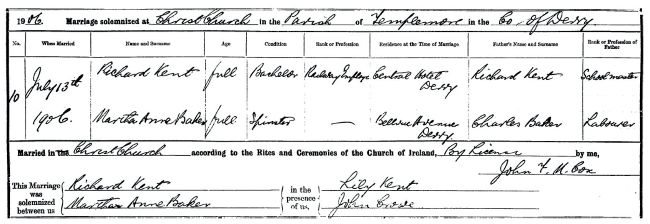 1906. Marriage solemnized at Christ Church in the Parish of Templemore in the Co. of Derry
No. When Married Name and Surname Age Condition Rank or Profession Residence at the Time of Marriage Father's Name and Surname Rank or Profession of Father
10 July 13th Richard Kent full Bachelor Railway Employe Central Hotel Derry Richard Kent Schoolmaster
1906. Martha Anne Baker full Spinster — Bellvue Avenue Derry Charles Baker Labourer
Married in the Christ Church according to the Rites and Ceremonies of the Church of Ireland, By License by me,
John F. M. Cox
This Marriage was solemnized between us Richard Kent in the presence of us, Lily Kent
Martha Anne Baker John Crowe.